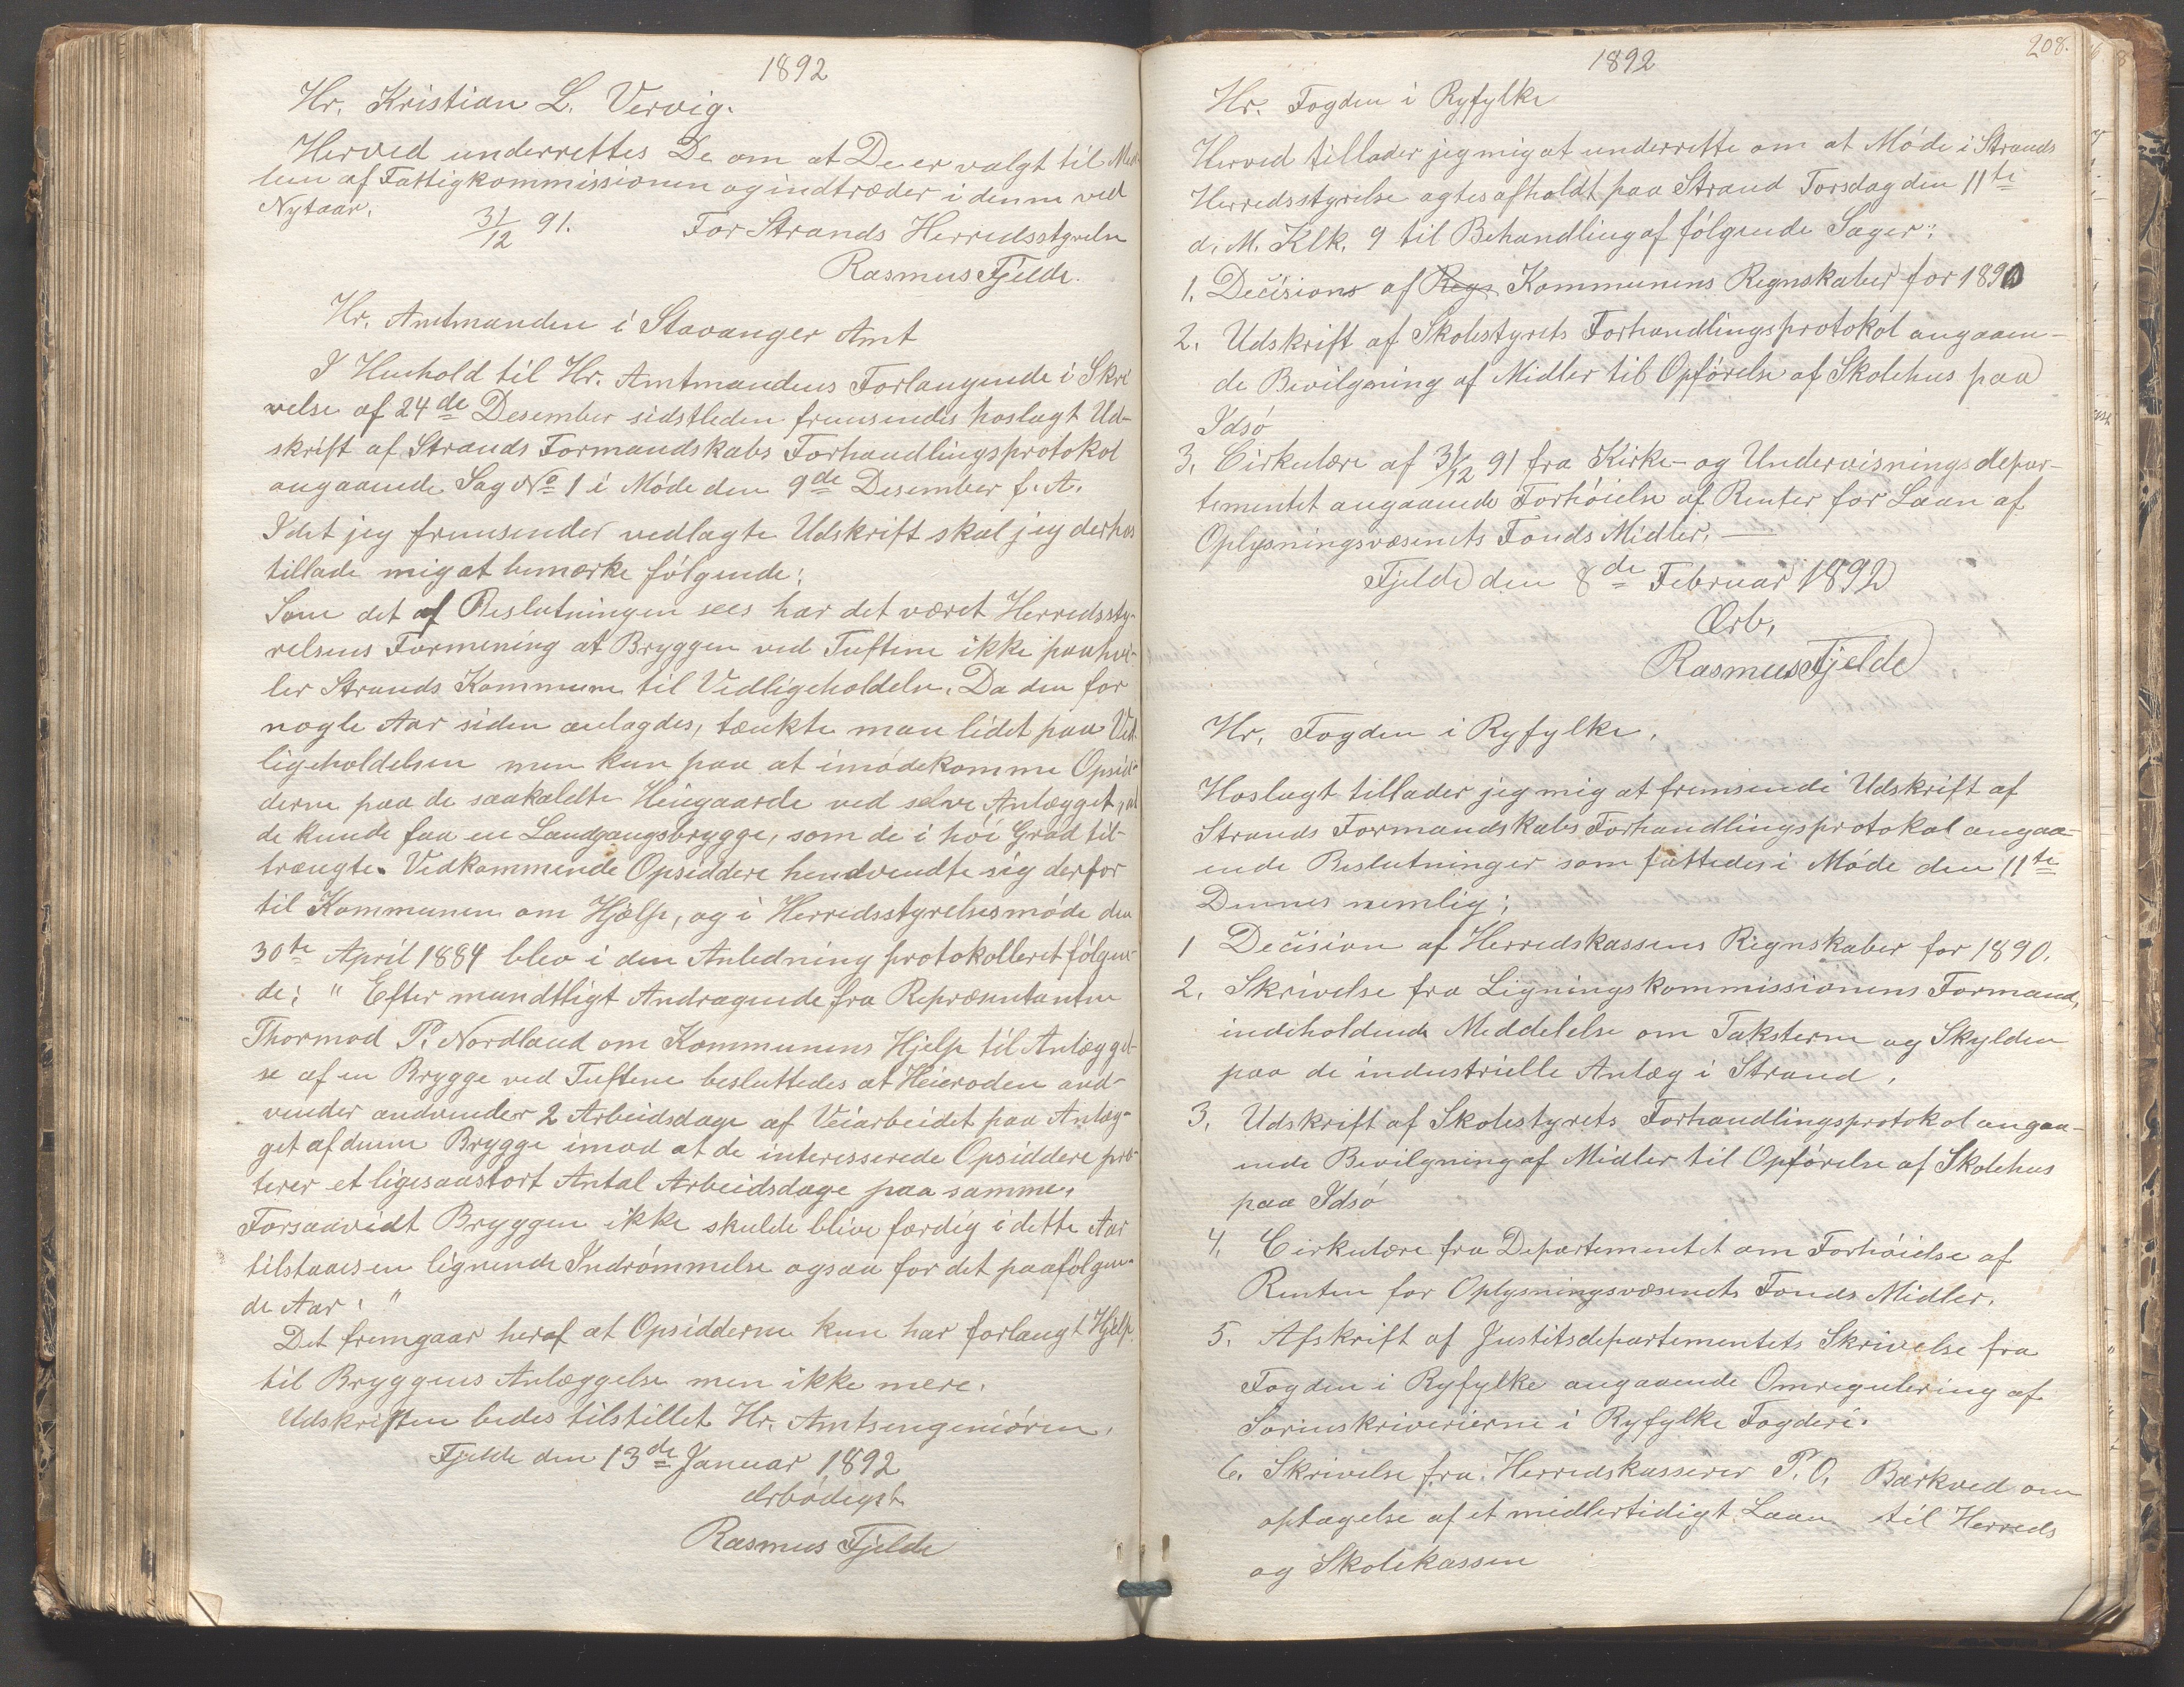 1892
Hr. Kristian L. Vervig.
Herved underrettes De om at De er valgt til Med-
lem af Fattigkommissionen og indtræder i denne ved
Nytaar.
31/12 91. For Strands Herredsstyrelse
Rasmus Fjelde.
Hr. Amtmanden i Stavanger Amt
I Henhold til Hr. Amtmandens Forlangende i Skri
velse af 24de Desember sidstleden fremsendes hoslagt Ud-
skrift af Strands Formandskabs Forhandlingsprotokol
angaaende Sag No 1 i Møde den 9de Desember f. A.
Idet jeg fremsender vedlagte Udskrift skal jeg derhos
tillade mig at bemærke følgende:
Som det af Beslutningen sees har det været Herredssty-
relsens Formening at Bryggen ved Tuftene ikke paahvi-
ler Strands Kommune til Vedligeholdelse. Da den for
nogle Aar siden anlagdes, tænkte man lidet paa Ved-
ligeholdelsen men kun paa at imødekomme Opsid-
derne paa de saakaldte Heiegaarde ved selve Anlægget, at
de kunde faa en Landgangsbrygge, som de i høi Grad til-
trængte. Vedkommende Opsiddere hendvendte sig derfor
til Kommunen om Hjælp, og i Herredsstyrelsesmøde den
30te April 1884 blev i den Anledning protokolleret følgen-
de: " Efter mundtligt Andragende fra Repræsentanten
Thormod P. Nordland om Kommunens Hjelp til Anlægget-
se af en Brygge ved Tuftene besluttedes at Heieroden and-
vender andvender 2 Arbeidsdage af Veiarbeidet paa Anlæg-
get af denne Brygge imod at de interesserede Opsiddere præ-
terer et ligesaastort Antal Arbeidsdage paa samme.
Forsaavidt Bryggen ikke skulde blive færdig i dette Aar
tilstaaes en lignende Indrømmelse ogsaa for det paafølgen-
de Aar. "
Det fremgaar heraf at Opsidderne kun har forlangt Hjelp
til Bryggens Anlæggelse men ikke mere.
Udskriften bedes tilstillet Hr. Amtsengeniøren.
Fjelde den 13de Januar 1892
Ærbødigst
Rasmus Fjelde
208.
1892
Hr. Fogden i Ryfylke
Herved tillader jeg mig at underrette om at Møde i Strands
Herredsstyrelse agtes afholdt paa Strand Torsdag den 11te
d. M. Klk. 9 til Behandling af følgende Sager:
1. Decisions af Regn Kommunens Regnskaber for 1890
2. Udskrift af Skolestyrets Forhandlingsprotokol angaaen-
de Bevilgning af Midler til Opførelse af Skolehus paa
Idsø
3. Cirkulære af 31/12 91 fra Kirke- og Undervisningsdepar-
tementet angaaende Forhøielse af Renter for Laan af
Oplysningsvæsenets Fonds Midler.
Fjelde den 8de Februar 1892
Ærb.
Rasmus Fjelde
Hr. Fogden i Ryfylke.
Hoslagt tillader jeg mig at fremsende Udskrift af
Strands Formandskabs Forhandlingsprotokol angaa-
ende Beslutninger som fattedes i Møde den 11te
Dennes nemlig:
1 Decision af Herredskassens Regnskaber for 1890.
2. Skrivelse fra Ligningskommissionens Formand,
indeholdende Meddelelse om Taksterne og Skylden
paa de industrielle Anlæg i Strand.
3. Udskrift af Skolestyrets Forhandlingsprotokol angaa-
ende Bevilgning af Midler til Opførelse af Skolehus
paa Idsø
4. Cirkulære fra Departementet om Forhøielse af
Renten for Oplysningsvæsenets Fonds Midler.
5. Afskrift af Justitsdepartementets Skrivelse fra
Fogden i Ryfylke angaaende Omregulering af
Sorinskriverierne i Ryfylke Fogderi.
6. Skrivelse fra Herredskasserer P. O. Barkved om
optagelse af et midlertidigt Laan til Herreds
og Skolekassen